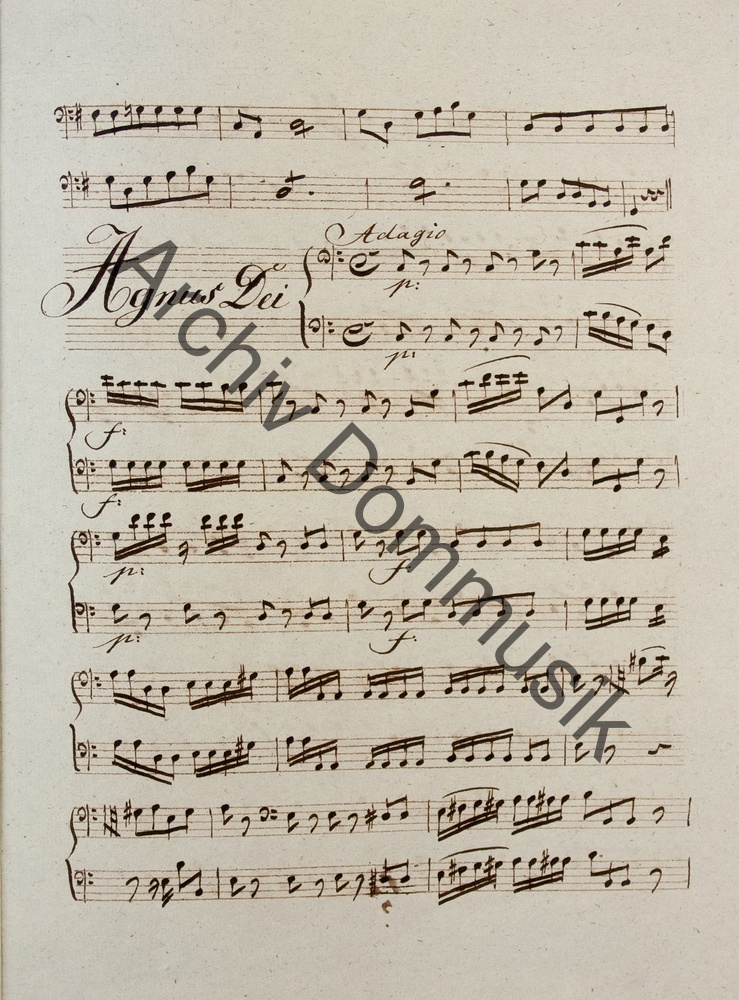 Adagio
Agnus Dei
p:
p:
f:
f:
p:
f:
p:
f:
Archiv Dommusik